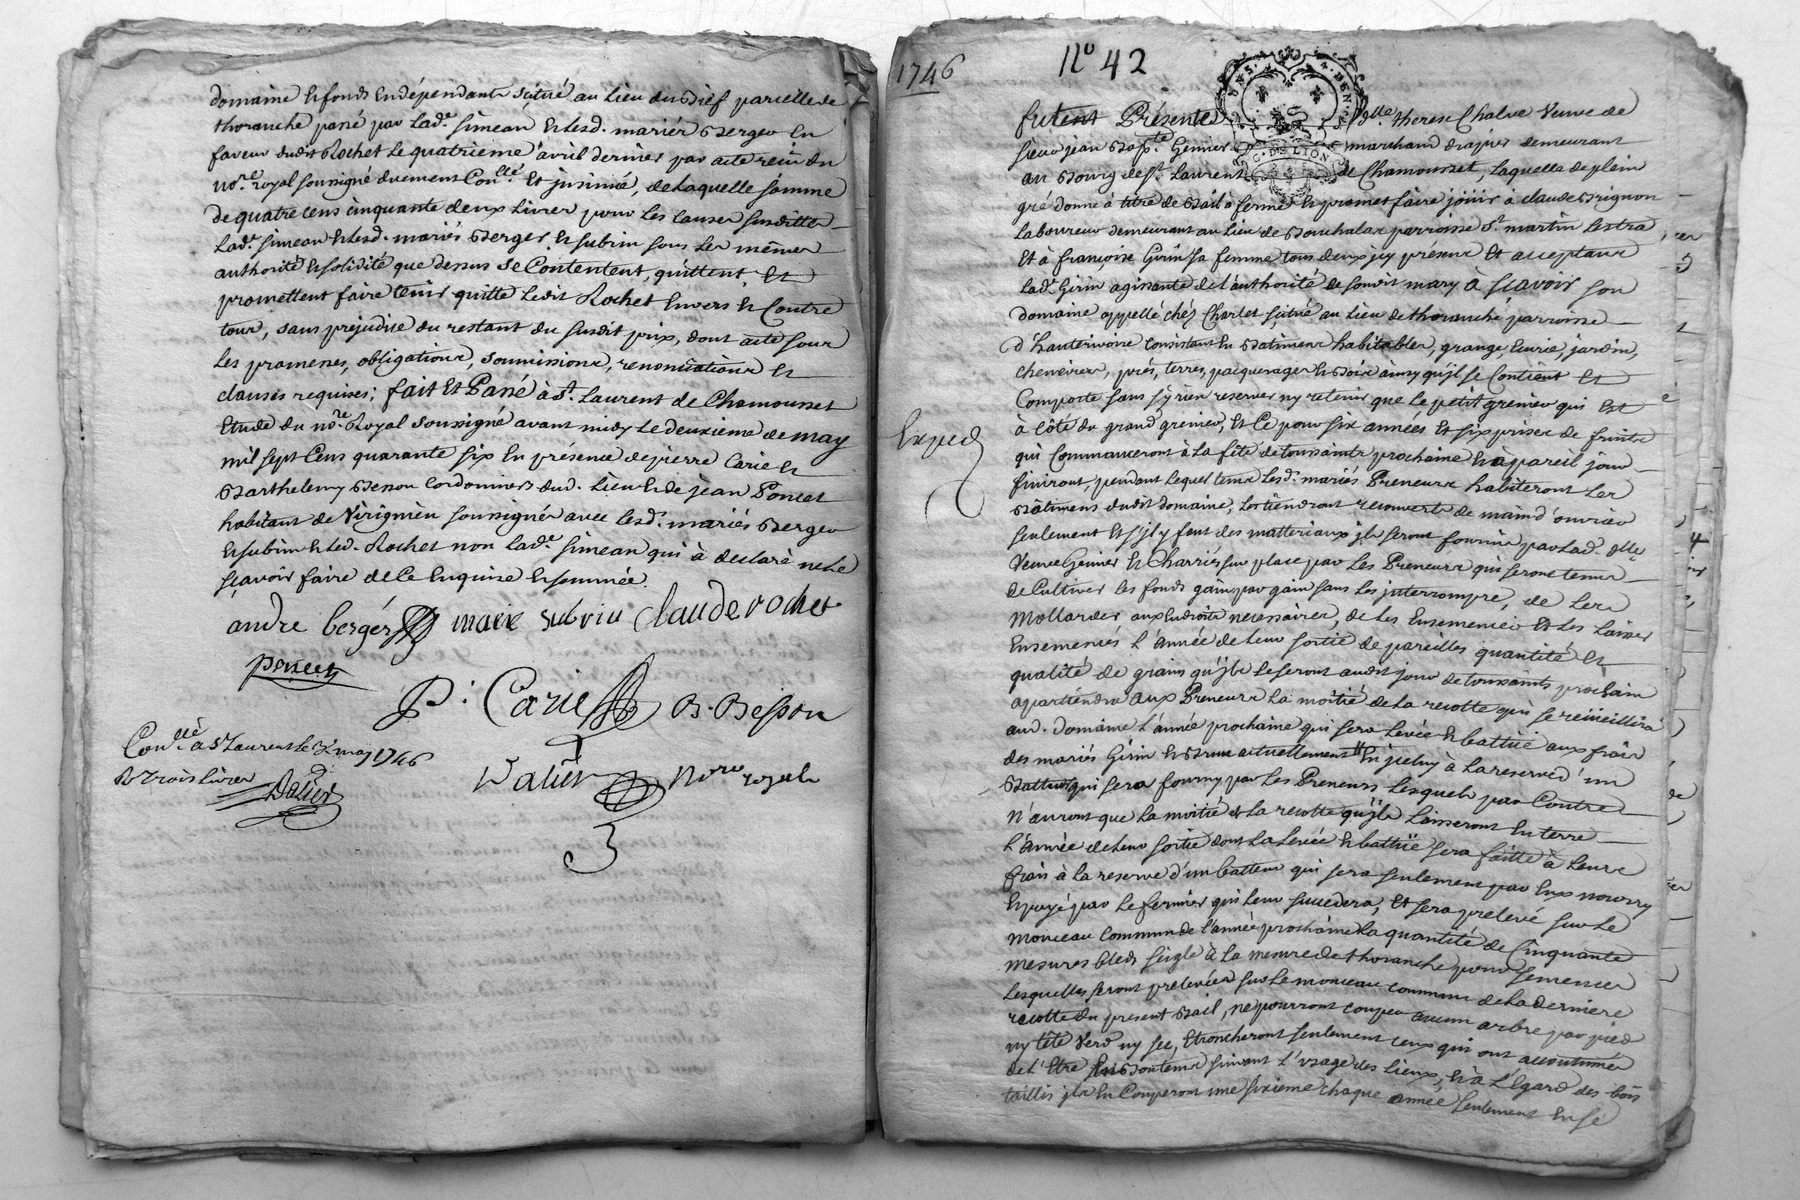 domaine et fonds en dépendants situé au lieu du Brief parcelle de
thoranche passé par lad.e simean et lesd. mariés Berger en
faveur dudit Rochet le quatrieme avril dernier par acte reçu du
no.re royal soussigné duement Con.llé et jnsinué, de laquelle somme
de quatre cens cinquante deux livres pour les causes susdittes
lad.e simean et lesd. mariés Berger et subrin sous les mêmes
authorité et solidité que dessus se Contentent, quittent et
promettent faire tenir quitte ledit Rochet envers et Contre
tous, sans préjudice du restant du susdit prix, dont acte sous
les promesses, obligations, soumissions, renonciations et
clauses requises; fait et Passé à S.t Laurent de Chamousset
Etude du no.re Royal soussigné avant midy le deuxieme de may
mil sept cens quarante six en présence de pierre Carie et
Barthelemy Besson Cordonniers dud. lieu et de jean Poncet
habitant de Virignieu soussignés avec lesd. mariés Berger
et subrin et led. Rochet non lad.e simean qui à declaré ne le
sçavoir faire de ce enquise et sommée.
andre bergér marie subrin Claude rochet
poncet
P: Carie B. Besson
Con.llé a S.t Laurent le 2 may 1746
R trois livres
Dalier
Dalier No.re royal
3
1746
N.o 42
C. DE LION
furent Présente d.lle therese Chalve Veuve de
sieur jean Bap.te Genier marchand drapier demeurant
au Bourg de S.t Laurent de Chamousset, laquelle de plein
gré donne à titre de Bail à ferme et promet faire jouir à claude Brignon
laboureur demeurant au lieu de Bouchalas parroisse S.t martin lestra
et à françoise Girin sa femme tous deux jcy présens et acceptans
lad.e Girin agissante de l'authorité de sondit mary à sçavoir son
domaine appellé chés Charlet situé au lieu de thoranche parroisse
d'hauterivoire consistant en Batimens habitables, grange, Ecurie, jardin,
chenevier, prés, terres, pacquerages et Bois ainsy qu'jl se Contient et
Comporte sans s'y rien reserver ny retenir que le petit grenier qui est
à côté du grand grenier, et ce pour six années et six prises de fruits
qui Commanceront à la fête de toussaints prochaine et à pareil jour
finiront, pendant lequel tems lesd. mariés Preneurs habiteront les
Bâtimens dudit domaine, les tiendront recouverts de main d'ouvrier
seulement et s'jl y faut des matteriaux jls seront fournis par lad. d.lle
Veuve Genier et Charriés sur place par les Preneurs qui seront tenus
de Cultiver les fonds gain par gain sans les jnterrompre, de les
Mollarder aux Endroits necessaires, de les Ensemencer et les laisser
Ensemencés l'année de leur sortie de pareilles quantité et
qualité de grains qu'jls le seront audit jour de toussaints prochain
apartiendra aux Preneurs la moitié de la recolte qui se recueillira
aud. domaine l'année prochaine qui sera levée et battüe aux frais
des mariés Girin et Brun actuellement en jceluy à la reserve d'un
Batteur qui sera fourny par les Preneurs lesquels par Contre
n'auront que la moitié de la recolte qu'jls laisseront en terre
l'année de leur sortie dont la levée et battüe sera faitte à leurs
frais à la reserve d'un batteur qui sera seulement par Eux nourry
et payé par le fermier qui leur succedera, et sera prelevé sur le
monceau commun de l'année prochaine la quantité de Cinquante
mesures bleds seigle à la mesure de thoranche pour semences
lesquelles seront prelevées sur le monceau commun de la derniere
recolte du present Bail, ne pourront couper aucun arbre par pied
ny tête verd ny sec, Etroncheront seulement ceux qui ont accoutumés
de l'Etre suivant l'usage des lieux, et à l'égard des bois
taillis jls en Couperont une sixieme chaque année seulement en se
Exped